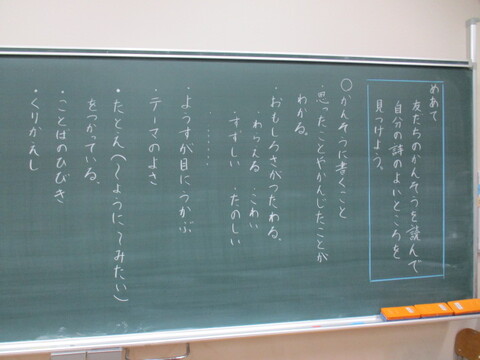 めあて
友だちのかんそうを読んで
自分の詩のよいところを
見つけよう。
○かんそうに書くこと
・思ったことやかんじたことが
わかる。
・おもしろさがつたわる。
・わらえる ・こわい
・すずしい ・たのしい
・・・・・・
・ようすが目にうかぶ
・テーマのよさ
・たとえ(～ように～みたい)
をつかっている。
・ことばのひびき
・くりかえし